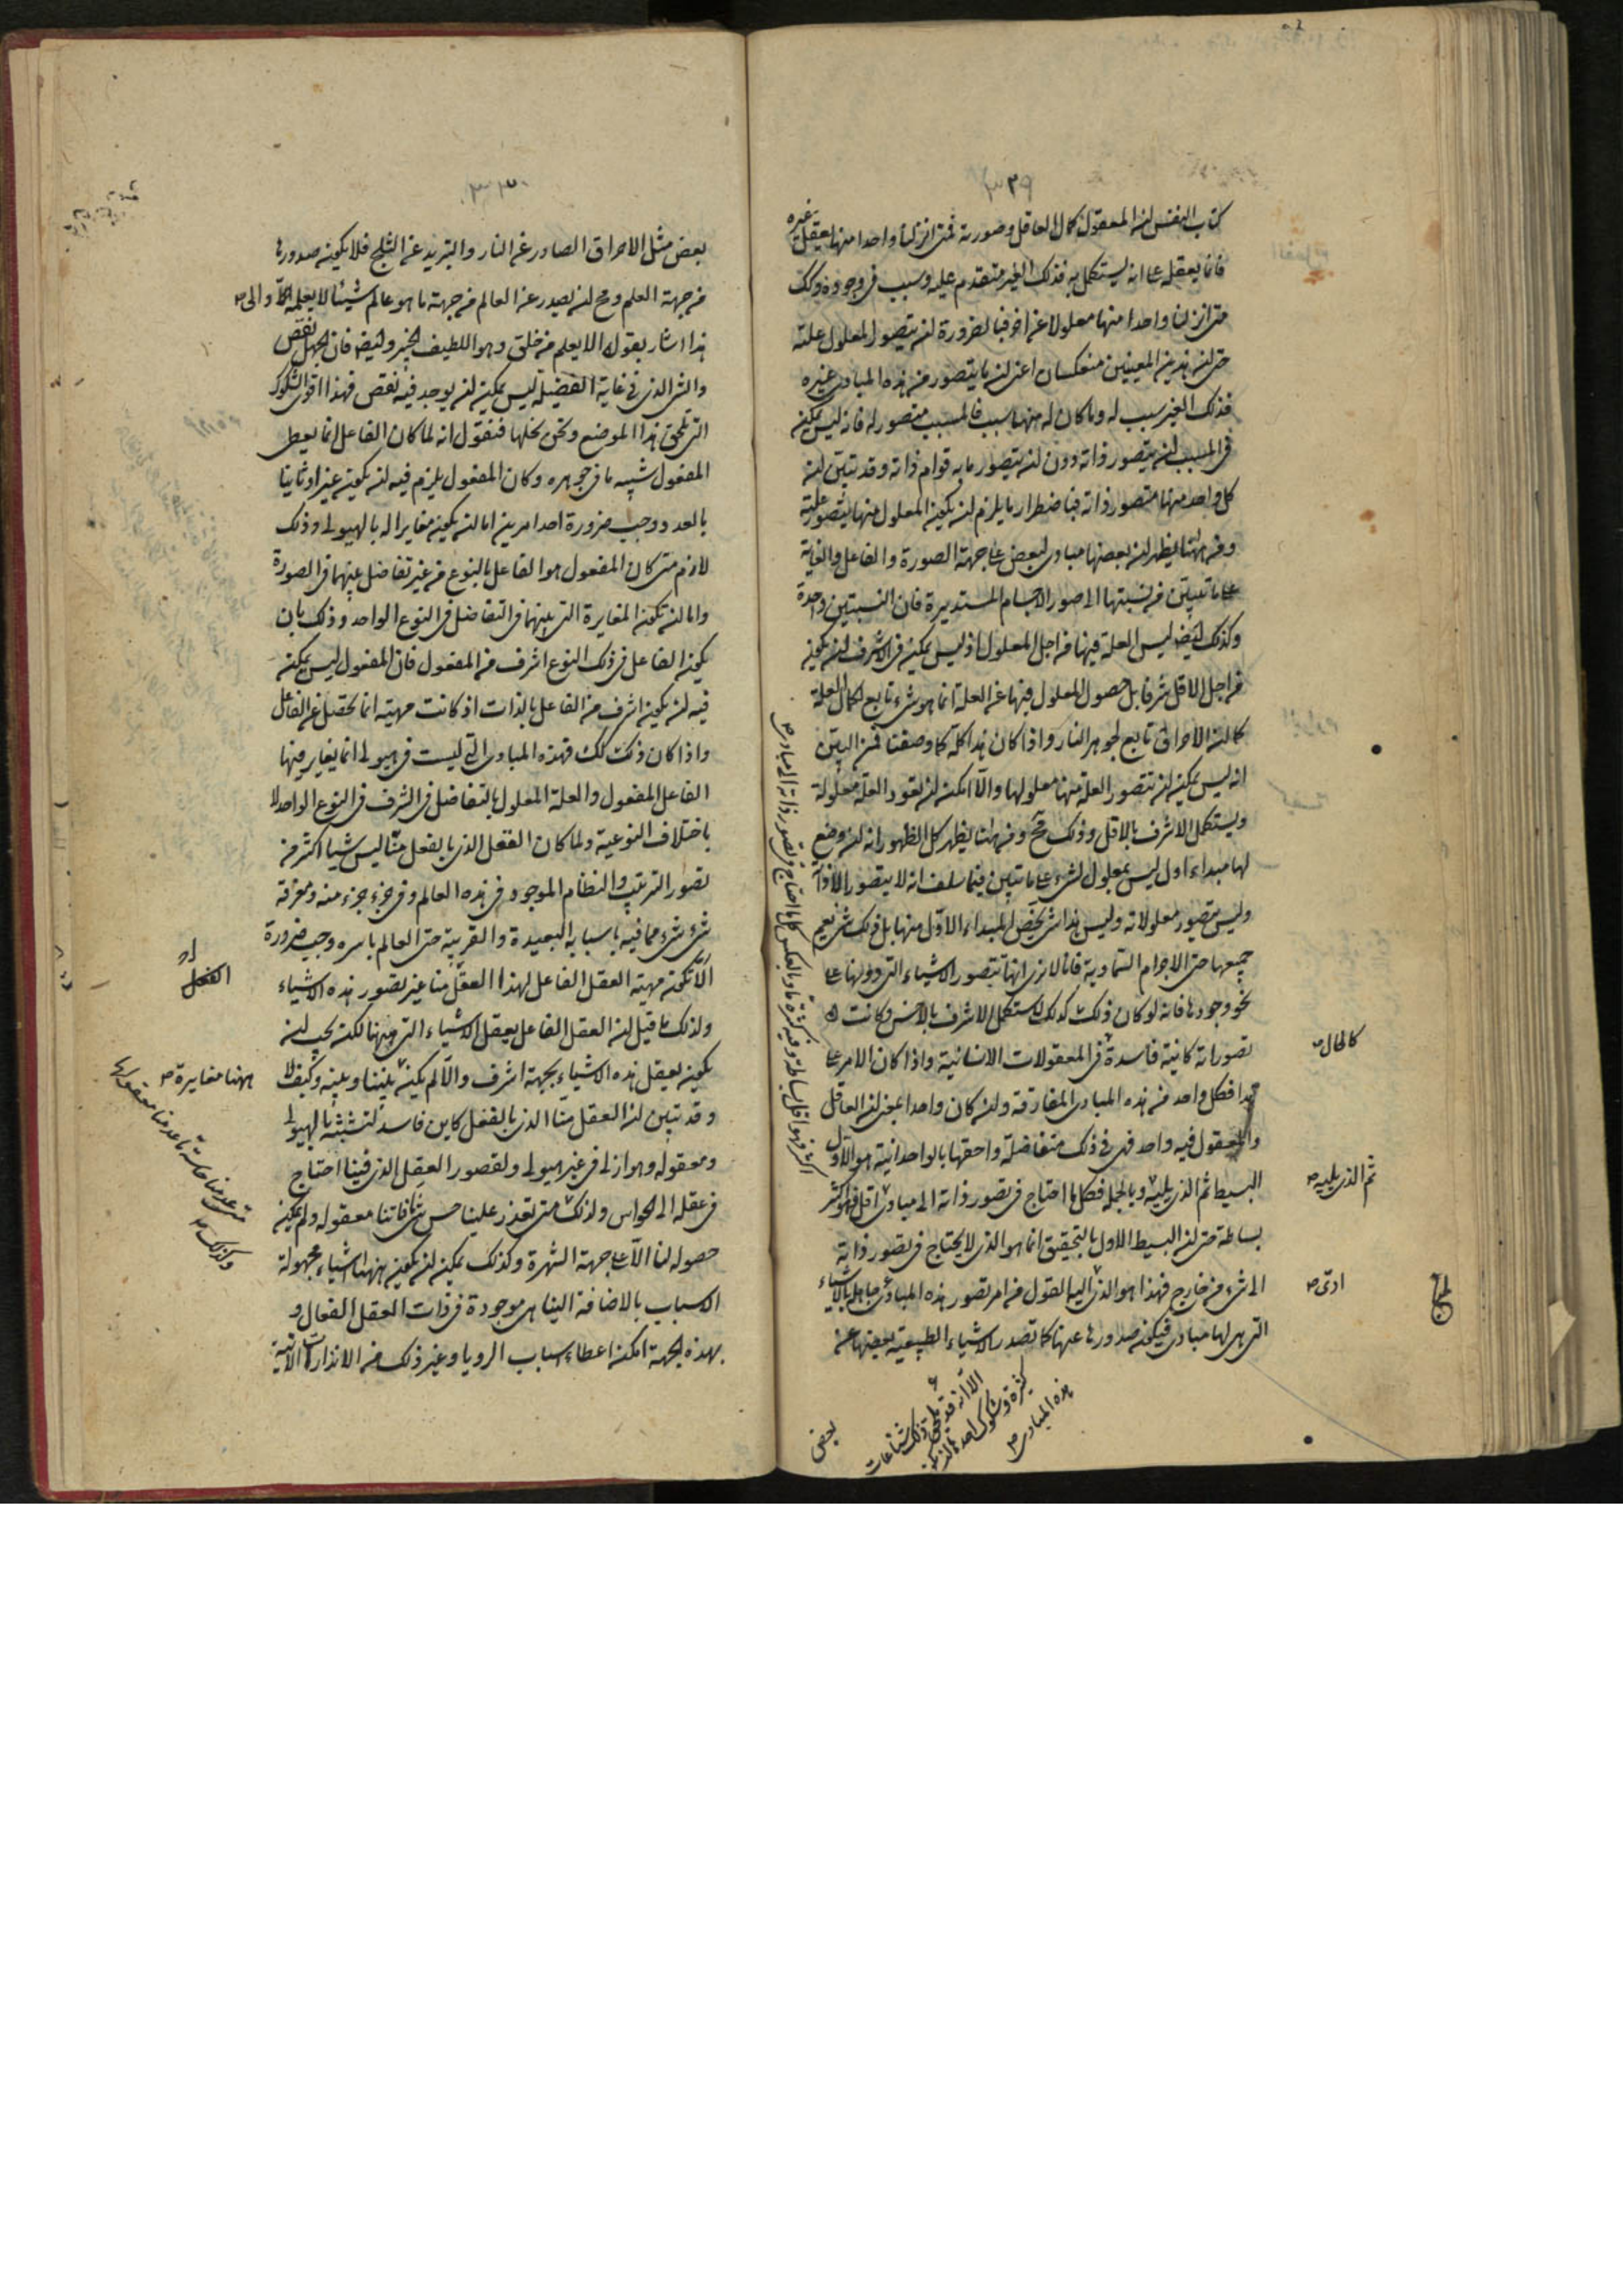 ٣٢٩
كتاب النفس ان المعقول كمال العاقل وصورته فمتى انزلنا واحدا منها يعقل غيره
فانما يعقله على انه يستكمل به فذلك الغير متقدم عليه وسبب فى وجوده وكك
متى انزلنا واحدا منها معلولا عن اخر فبالضرورة ان يتصور المعلول علته
حتى ان هذين المعنيين منعكسان اعنى ان ما يتصور من هذه المبادى غيره
فذلك الغير سبب له وما كان له منها سبب فالمسبب متصور له فانه ليس يمكن
فى المسبب ان يتصور ذاته دون ان يتصور ما به قوام ذاته وقد تبين ان
كل واحد منها متصور ذاته فباضطرار ما يلزم ان يكون المعلول منها يتصور علته
ومن ههنا يظهر ان بعضها مبادى لبعض على جهة الصورة والفاعل والغاية
على ما تبين من نسبتها الى صور الاجسام المستديرة فان النسبتين واحدة
وكذلك ايضا ليس العلة فيها من اجل المعلول اذ ليس يمكن فى الاشرف ان يكون
من اجل الاقل شرفا بل حصول المعلول فيها عن العلة انما هو شىء تابع لكمال العلة
كما ان الاحراق تابع لجوهر النار واذا كان هذا كله كما وصفنا فمن البين
انه ليس يمكن ان تتصور العلة منها معلولها والا امكن ان تعود العلة معلولة
ويستكمل الاشرف بالاقل وذلك مح ومن ههنا يظهر كل الظهور انه ان وضع
لها مبداء اول ليس بمعلول لشىء على ما تبين فيما سلف انه لا يتصور الا ذاته
وليس يتصور معلولاته وليس هذا شىء يخص المبداء الاول منها بل ذلك شىء يعم
جميعها حتى الاجرام السماوية فانا لا نرى انها تتصور الاشياء التى دونها على
نحو وجودها فانه لو كان ذلك كذلك لاستكمل الاشرف بالاخس وكانت
تصوراته كائنة فاسدة فى المعقولات الانسانية واذا كان الامر على
كالحال
هذا فكل واحد من هذه المبادى المفارقة وان كان واحدا بمعنى ان العاقل
والمعقول فيه واحد فهى فى ذلك متفاضلة واحقها بالواحدانية هو الاول
البسيط ثم الذى يليه وبالجملة فكلما احتاج فى تصور ذاته الى مبادى اقل فهو اكثر
ثم الذى يليه
بساطة حتى ان البسيط الاول بالتحقيق انما هو الذى لا يحتاج فى تصور ذاته
الى شىء من خارج فهذا هو الذى الينا القول من امر تصور هذه المبادى
ادى
التى هى لها مبادى فيكون صدورها عنها كما تصدر الاشياء الطبيعية بعضها عن
الا انه قد يلحق ذلك شناعات
كثيرة وشكوك احدها
هذه المبادى
بعض
٣٣٠
بعض مثل الاحراق الصادر عن النار والتبريد عن الثلج فلا يكون صدورها
من جهة العلم ومح ان يصدر عن العالم من جهة ما هو عالم شيئا لا يعلمه والى
هذا اشار بقوله الا يعلم من خلق وهو اللطيف الخبير وايضا فان الجهل نقص
والشىء الذى فى غاية الفضيلة ليس يمكن ان يوجد فيه نقص فهذا اقوى الشكوك
التى تلحق هذا الموضع ونحن نحلها فنقول انه لما كان الفاعل انما يعطى
المفعول شبيه ما فى جوهره وكان المفعول يلزم فيه ان يكون غيرا وثانيا
بالعدد وجب ضرورة احد امرين اما ان يكون مغايرا له بالهيولى وذلك
لازم متى كان المفعول هو الفاعل بالنوع من غير تفاضل بينهما فى الصورة
واما ان تكون المغايرة التى بينهما فى التفاضل فى النوع الواحد وذلك بان
يكون الفاعل فى ذلك النوع اشرف من المفعول فان المفعول ليس يمكن
فيه ان يكون اشرف من الفاعل بالذات اذ كانت مهيته انما تحصل عن الفاعل
واذا كان ذلك كك فهذه المبادى التى ليست فى هيولى انما يغاير فيها
الفاعل المفعول والعلة المعلول بالتفاضل فى الشرف فى النوع الواحد لا
باختلاف النوعية ولما كان العقل الذى بالفعل منا ليس شيئا اكثر من
تصور الترتيب والنظام الموجود فى هذه العالم وفى جزء جزء منه ومعرفة
شىء شىء مما فيه باسبابه البعيدة والقريبة حتى العالم باسره وجب ضرورة
الا تكون مهية العقل الفاعل لهذا العقل منا غير تصور هذه الاشياء
ولذلك ما قيل ان العقل الفاعل يعقل الاشياء التى ههنا لكن يجب ان
يكون يعقل هذه الاشياء بجهة اشرف والا لم يكن بيننا وبينه وكيف لا
ههنا مغايرة
وقد تبين ان العقل منا الذى بالفعل كاين فاسد لتشبثه بالهيولى
ومعقوله هو ازلى فى غير هيولى ولقصور العقل الذى فينا احتاج
فى عقله الى الحواس ولذلك متى تعذر علينا حس ما فاتنا معقوله ولم يمكن
متى عدمنا حاسة ما عدمنا معقولها
وكذلك
حصوله لنا الا على جهة الشهرة وكذلك يمكن ان يكون ههنا اشياء مجهولة
الاسباب بالاضافة الينا هى موجودة فى ذات العقل الفعال و
بهذه الجهة امكن اعطاء اسباب الرويا وغير ذلك من الانذارات الاتية